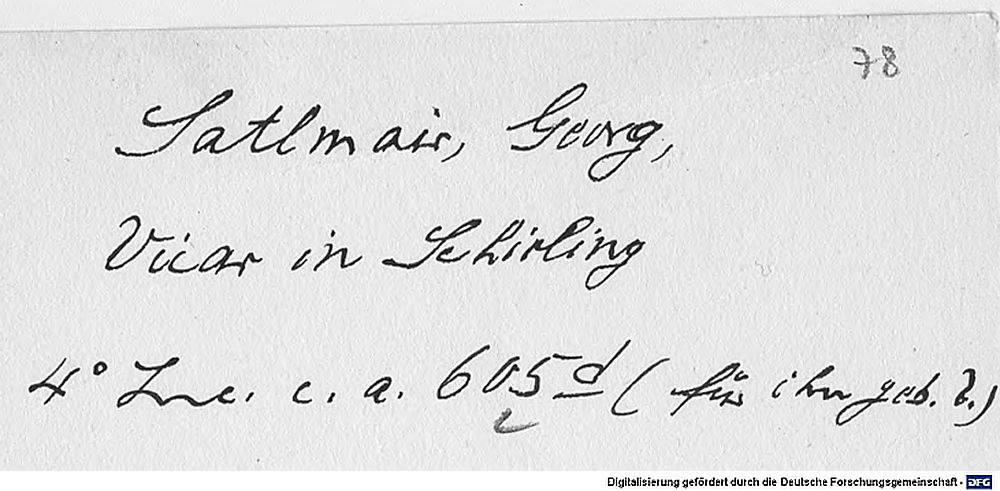 78
Satlmair, Georg,
Vicar in Schirling
4° Inc. c. a. 605 d (für ihn geb.?)
Digitalisierung gefördert durch die Deutsche Forschungsgemeinschaft - DFG